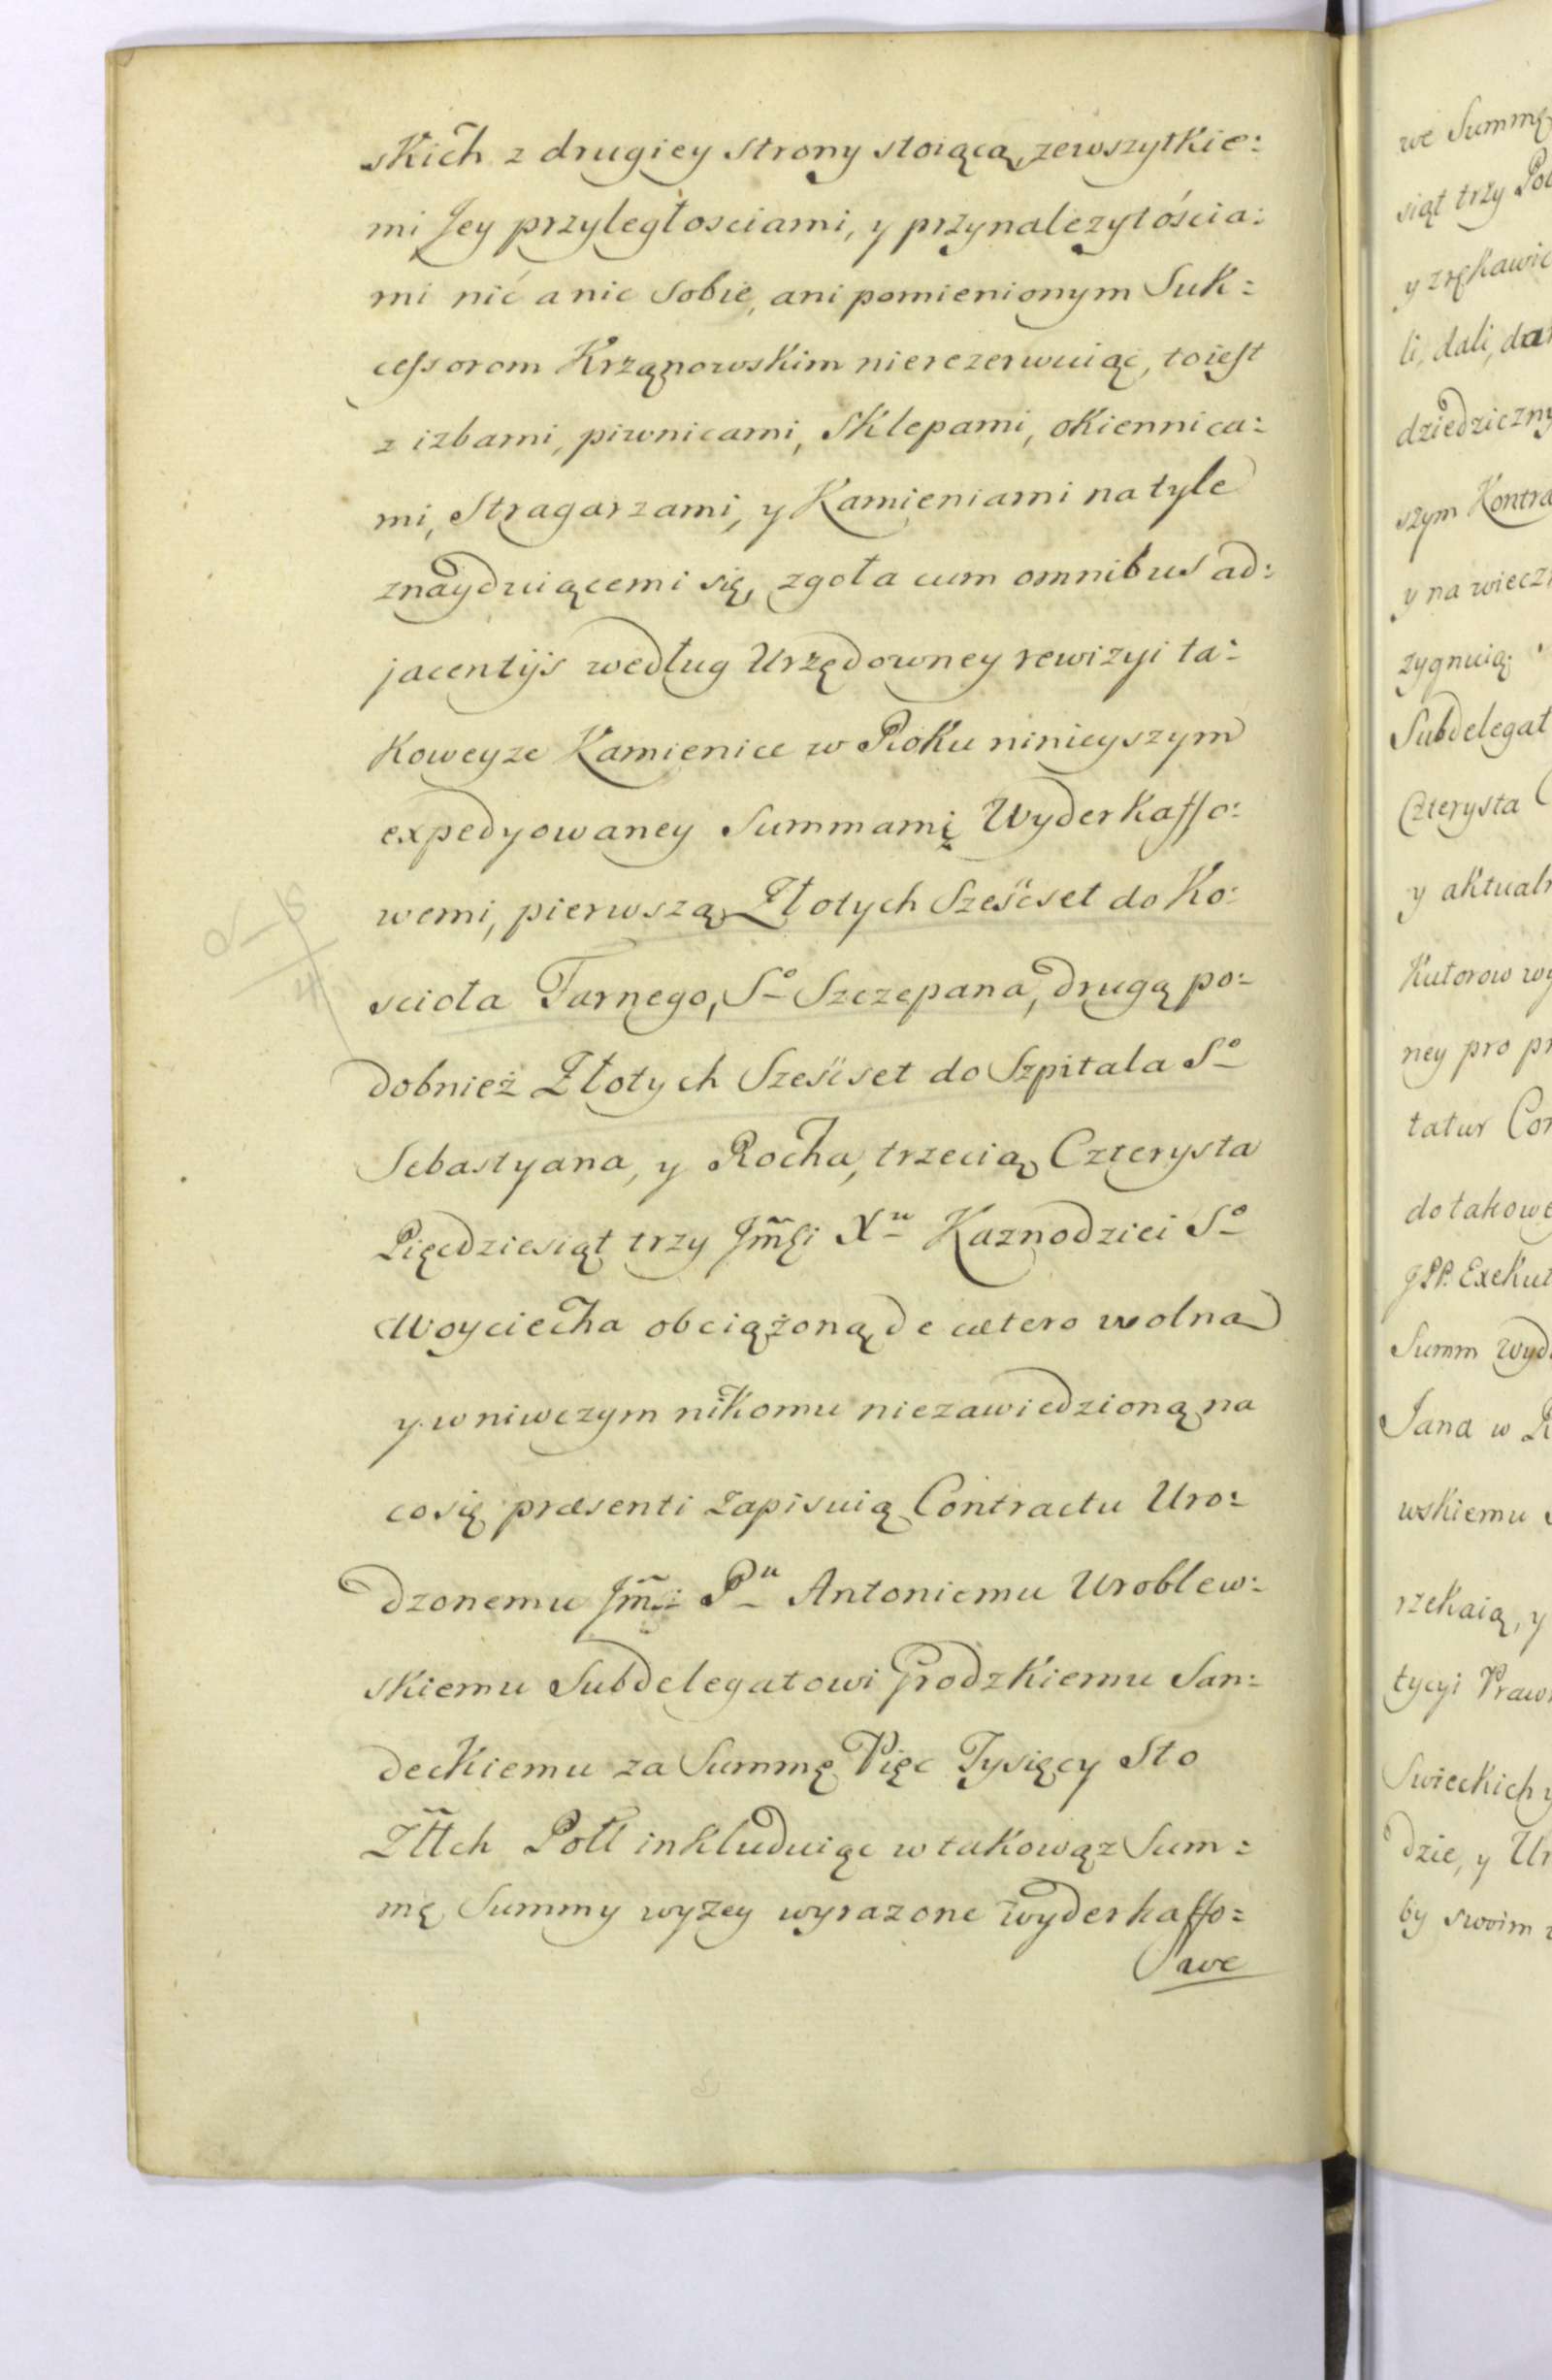 skich z drugiey strony stoiącą, zewszytkie:
mi Jey przyległosciami, y przynalezytościa:
mi nić a nic sobie, ani pomienionym Suk:
cessorom Krząnowskim nierezerwuiąc, toiest
z izbami, piwnicami, Sklepami, okiennica:
mi, Stragarzami, y Kamieniami na tyle
znayduiącemi się, zgoła cum omnibus ad:
jacentijs według Urzędowney rewizyi ta:
Koweyze Kamienice w Roku ninieyszym
expedyowaney Summami Wyderkaffo:
wemi, pierwszą Złotych Sześćset do Ko:
scioła Farnego, S° Szczepana, drugą po:
dobnież Złotych Sześćset do Szpitala S°
Sebastyana, y Rocha, trzecią Czterysta
Pięcdziesiąt trzy Jmsi Xu Kaznodziei S°
Woyciecha obciążoną, de cætero wolną
y w niwczym nikomu niezawiedzioną na
co się præsenti zapisuią Contractu Uro:
dzonemu Jmsi Pu Antoniemu Uroblew:
skiemu Subdelegatowi Grodzkiemu San:
deckiemu za Summę Pięc Tysięcy Sto
Złłch Poll inkluduiąc w takowąz Sum:
mę Summy wyzey wyrazone wyderkaffo:
we
we Summę
siąt trzy Pol
y zrękawic
li, dali, da
dziedziczny
szym Kontra
y na wiecz
zygnuią
Subdelegat
Czterysta
y aktual
Kutorow wy
ney pro pr
tatur Con
do takowe
JPP. Exekut
Summ wyd
Jana w R
wskiemu
rzekaią, y
tycyi Praw
Swieckich y
dzie, y Ur
by swoim